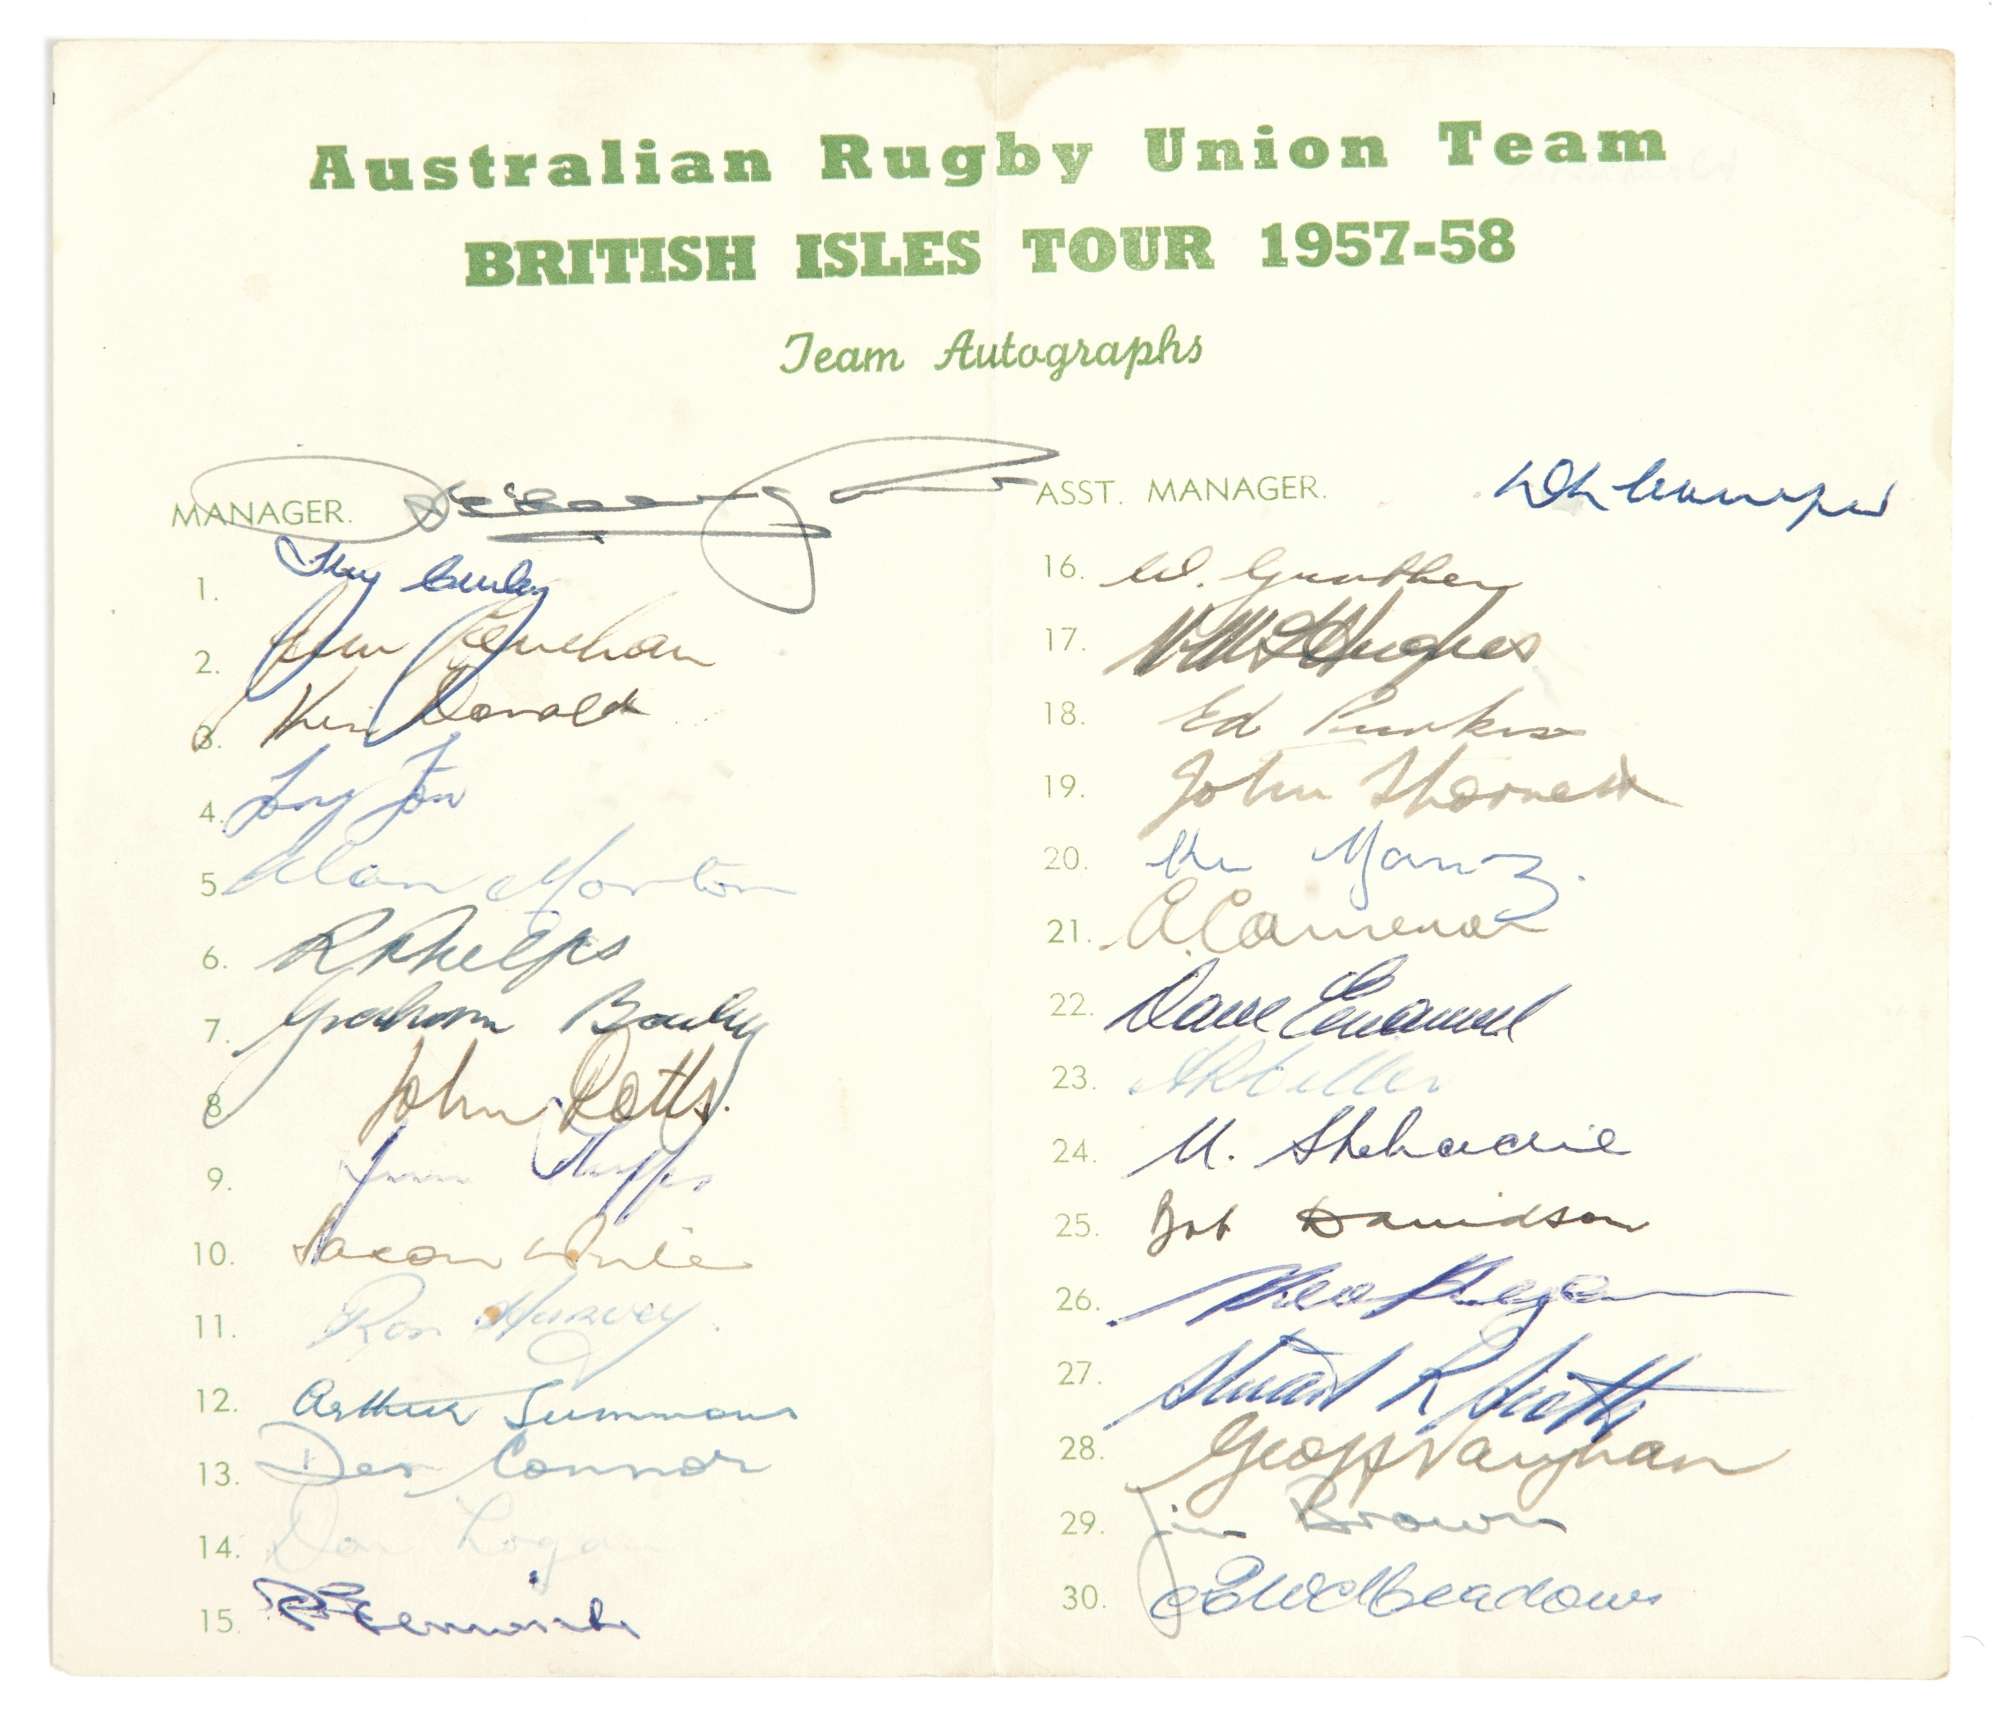 Australian Rugby Union Team
BRITISH ISLES TOUR 1957-58
Team Autographs
MANAGER.
1. Terry Curley
2. Jim Lenehan
3. Ken Donald
4. Tony Fox
5. Alan Morton
6. R Phelps
7. Graham Bailey
8. John Potts.
9. Jim Phipps
10. Saxon White
11. Ron Harvey.
12. Arthur Summons
13. Des Connor
14. Don Logan
15.
ASST. MANAGER.
16. W. Gunther
17. N M Hughes
18. Ed Purkiss
19. John Thornett
20. Ken Yanz.
21. A. Cameron
22. Dave Emanuel
23. A R Miller
24. M. Shehadie
25. Bob Davidson
26.
27. Stuart R Scotts
28. Geoff Vaughan
29. Jim Brown
30. Meadows